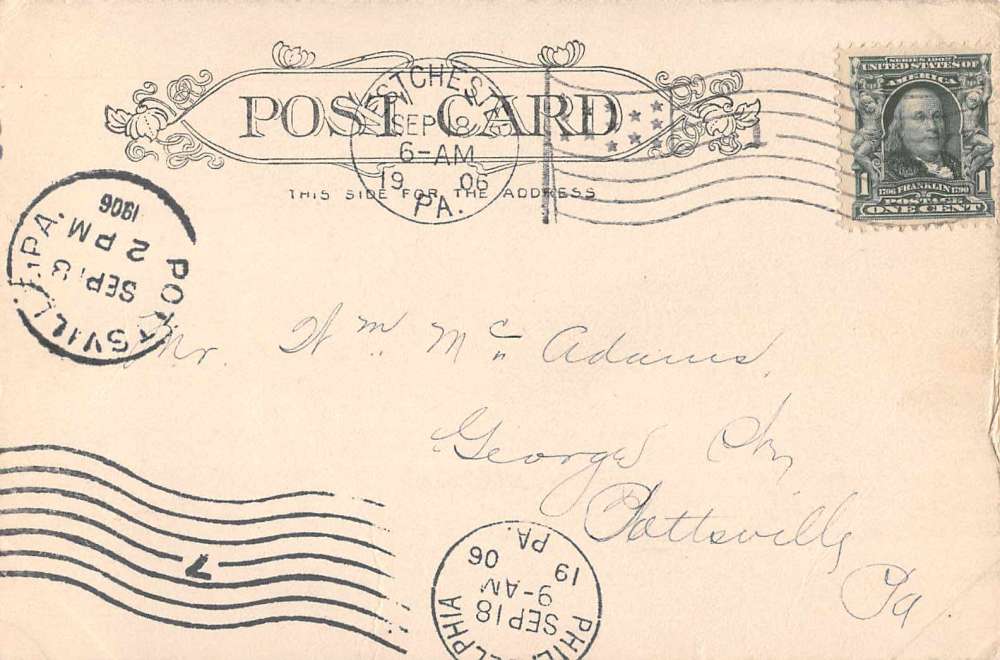 POST CARD
THIS SIDE FOR THE ADDRESS
WESTCHESTER
SEP 18
6-AM
19 06
PA.
1
UNITED STATES OF
AMERICA
1 1
1706 FRANKLIN 1790
POSTAGE
ONE CENT
POTTSVILLE, PA.
SEP 18
2 PM
1906
Mr. Wm. Mc Adams,
George
Pottsville
Pa
7
PHILADELPHIA
SEP 18
9-AM
19 06
PA.